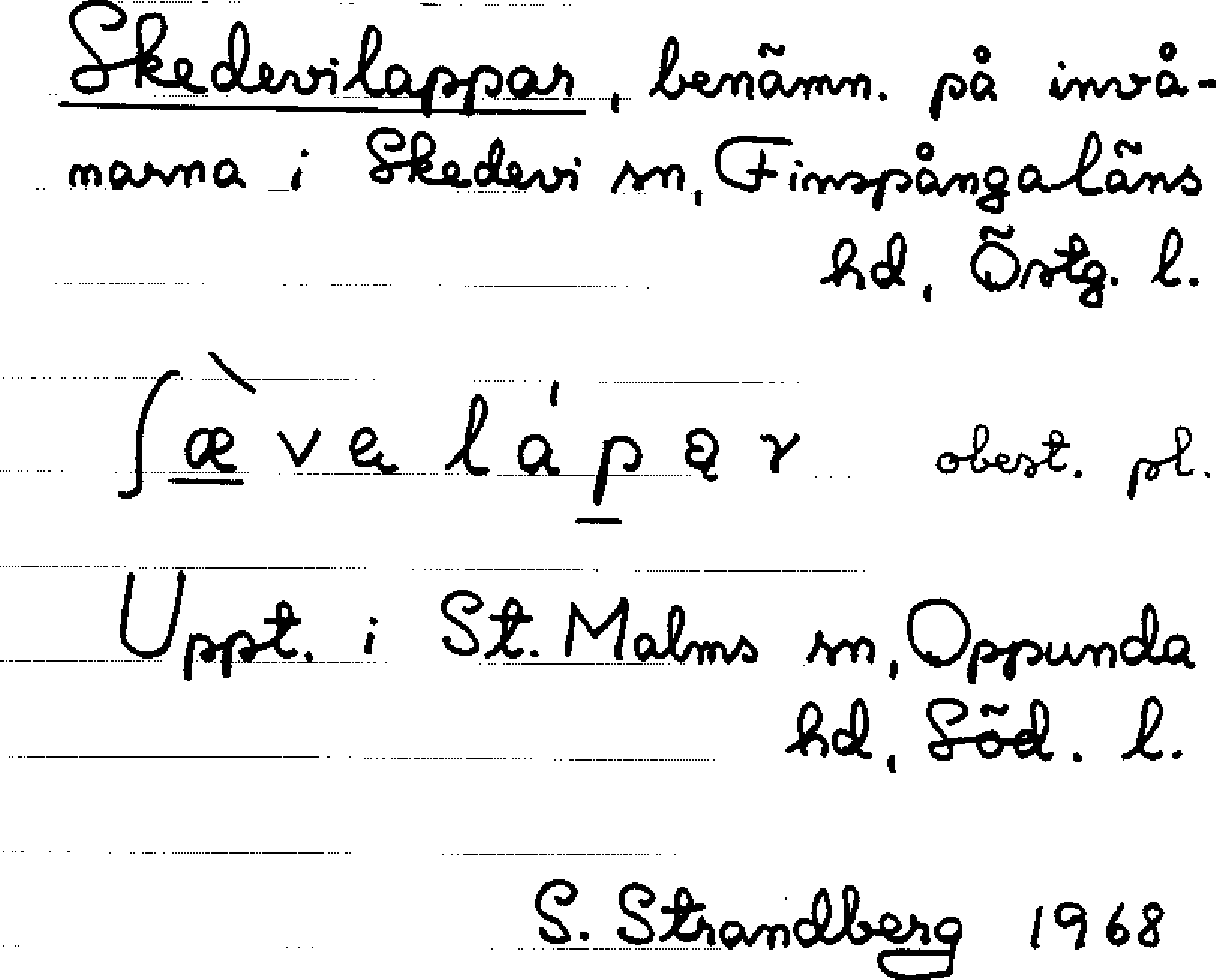 Skedevilappar, benämn. på invå-
narna i Skedevi sn, Finspångaläns
hd, Östg. l.
ʃæ̀va lápar obest. pl.
Uppt. i St. Malms sn, Oppunda
hd, Söd. l.
S. Strandberg 1968